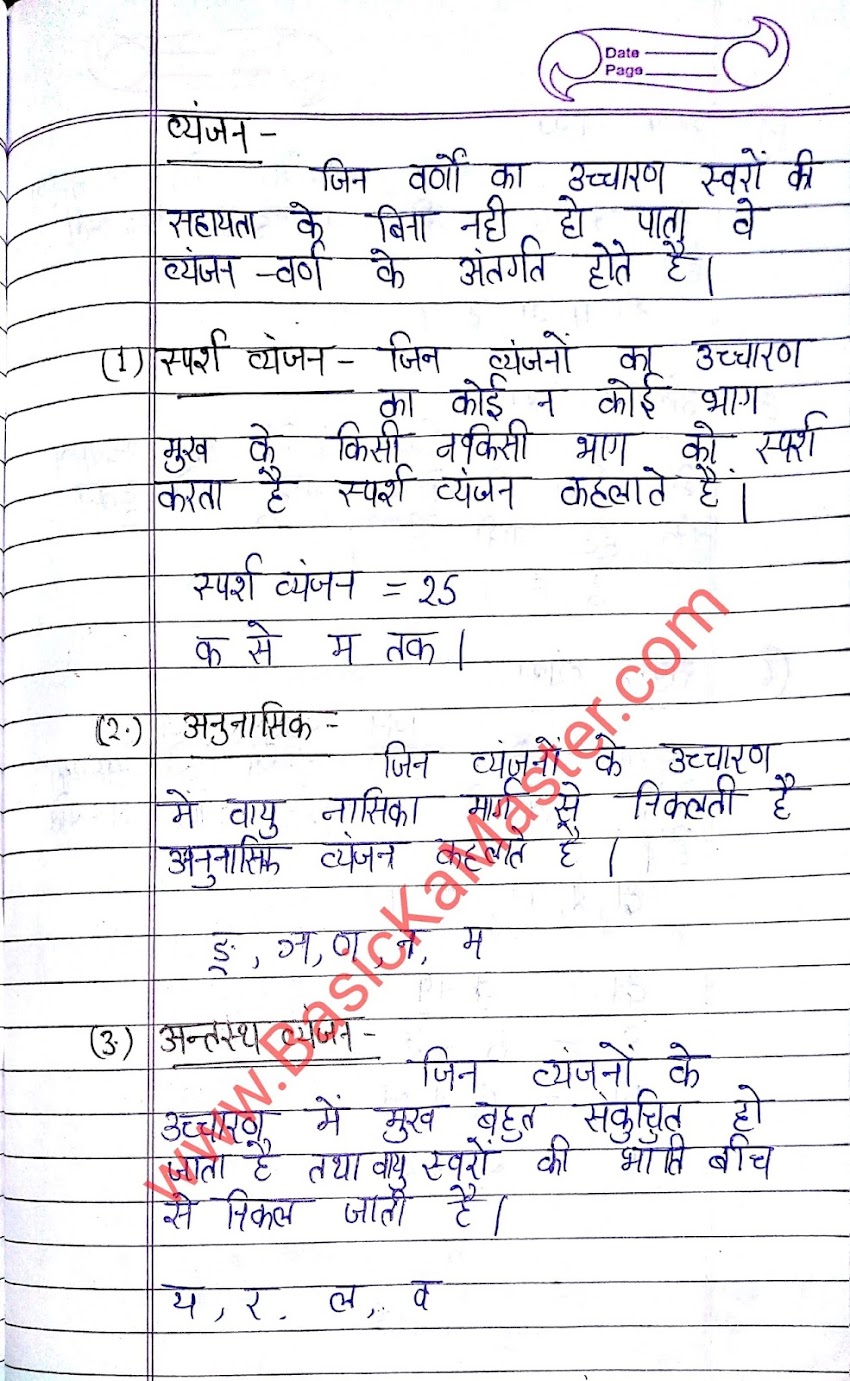 Date
Page
व्यंजन -
जिन वर्णों का उच्चारण स्वरों की
सहायता के बिना नही हो पाता वे
व्यंजन -वर्ण के अंतर्गत होते है।
(1) स्पर्श व्यंजन - जिन व्यंजनों का उच्चारण
का कोई न कोई भाग
मुख के किसी न किसी भाग को स्पर्श
करता है स्पर्श व्यंजन कहलाते हैं।
स्पर्श व्यंजन = 25
क से म तक।
(2.) अनुनासिक -
जिन व्यंजनों के उच्चारण
मे वायु नासिका मार्ग से निकलती है
अनुनासिक व्यंजन कहलाते है।
ङ, ञ, ण, न, म
(3.) अन्तस्थ व्यंजन -
जिन व्यंजनों के
उच्चारण में मुख बहुत संकुचित हो
जाता है तथा वायु स्वरों की भाति बीच
से निकल जाती है।
य, र, ल, व
www.BasicKaMaster.com